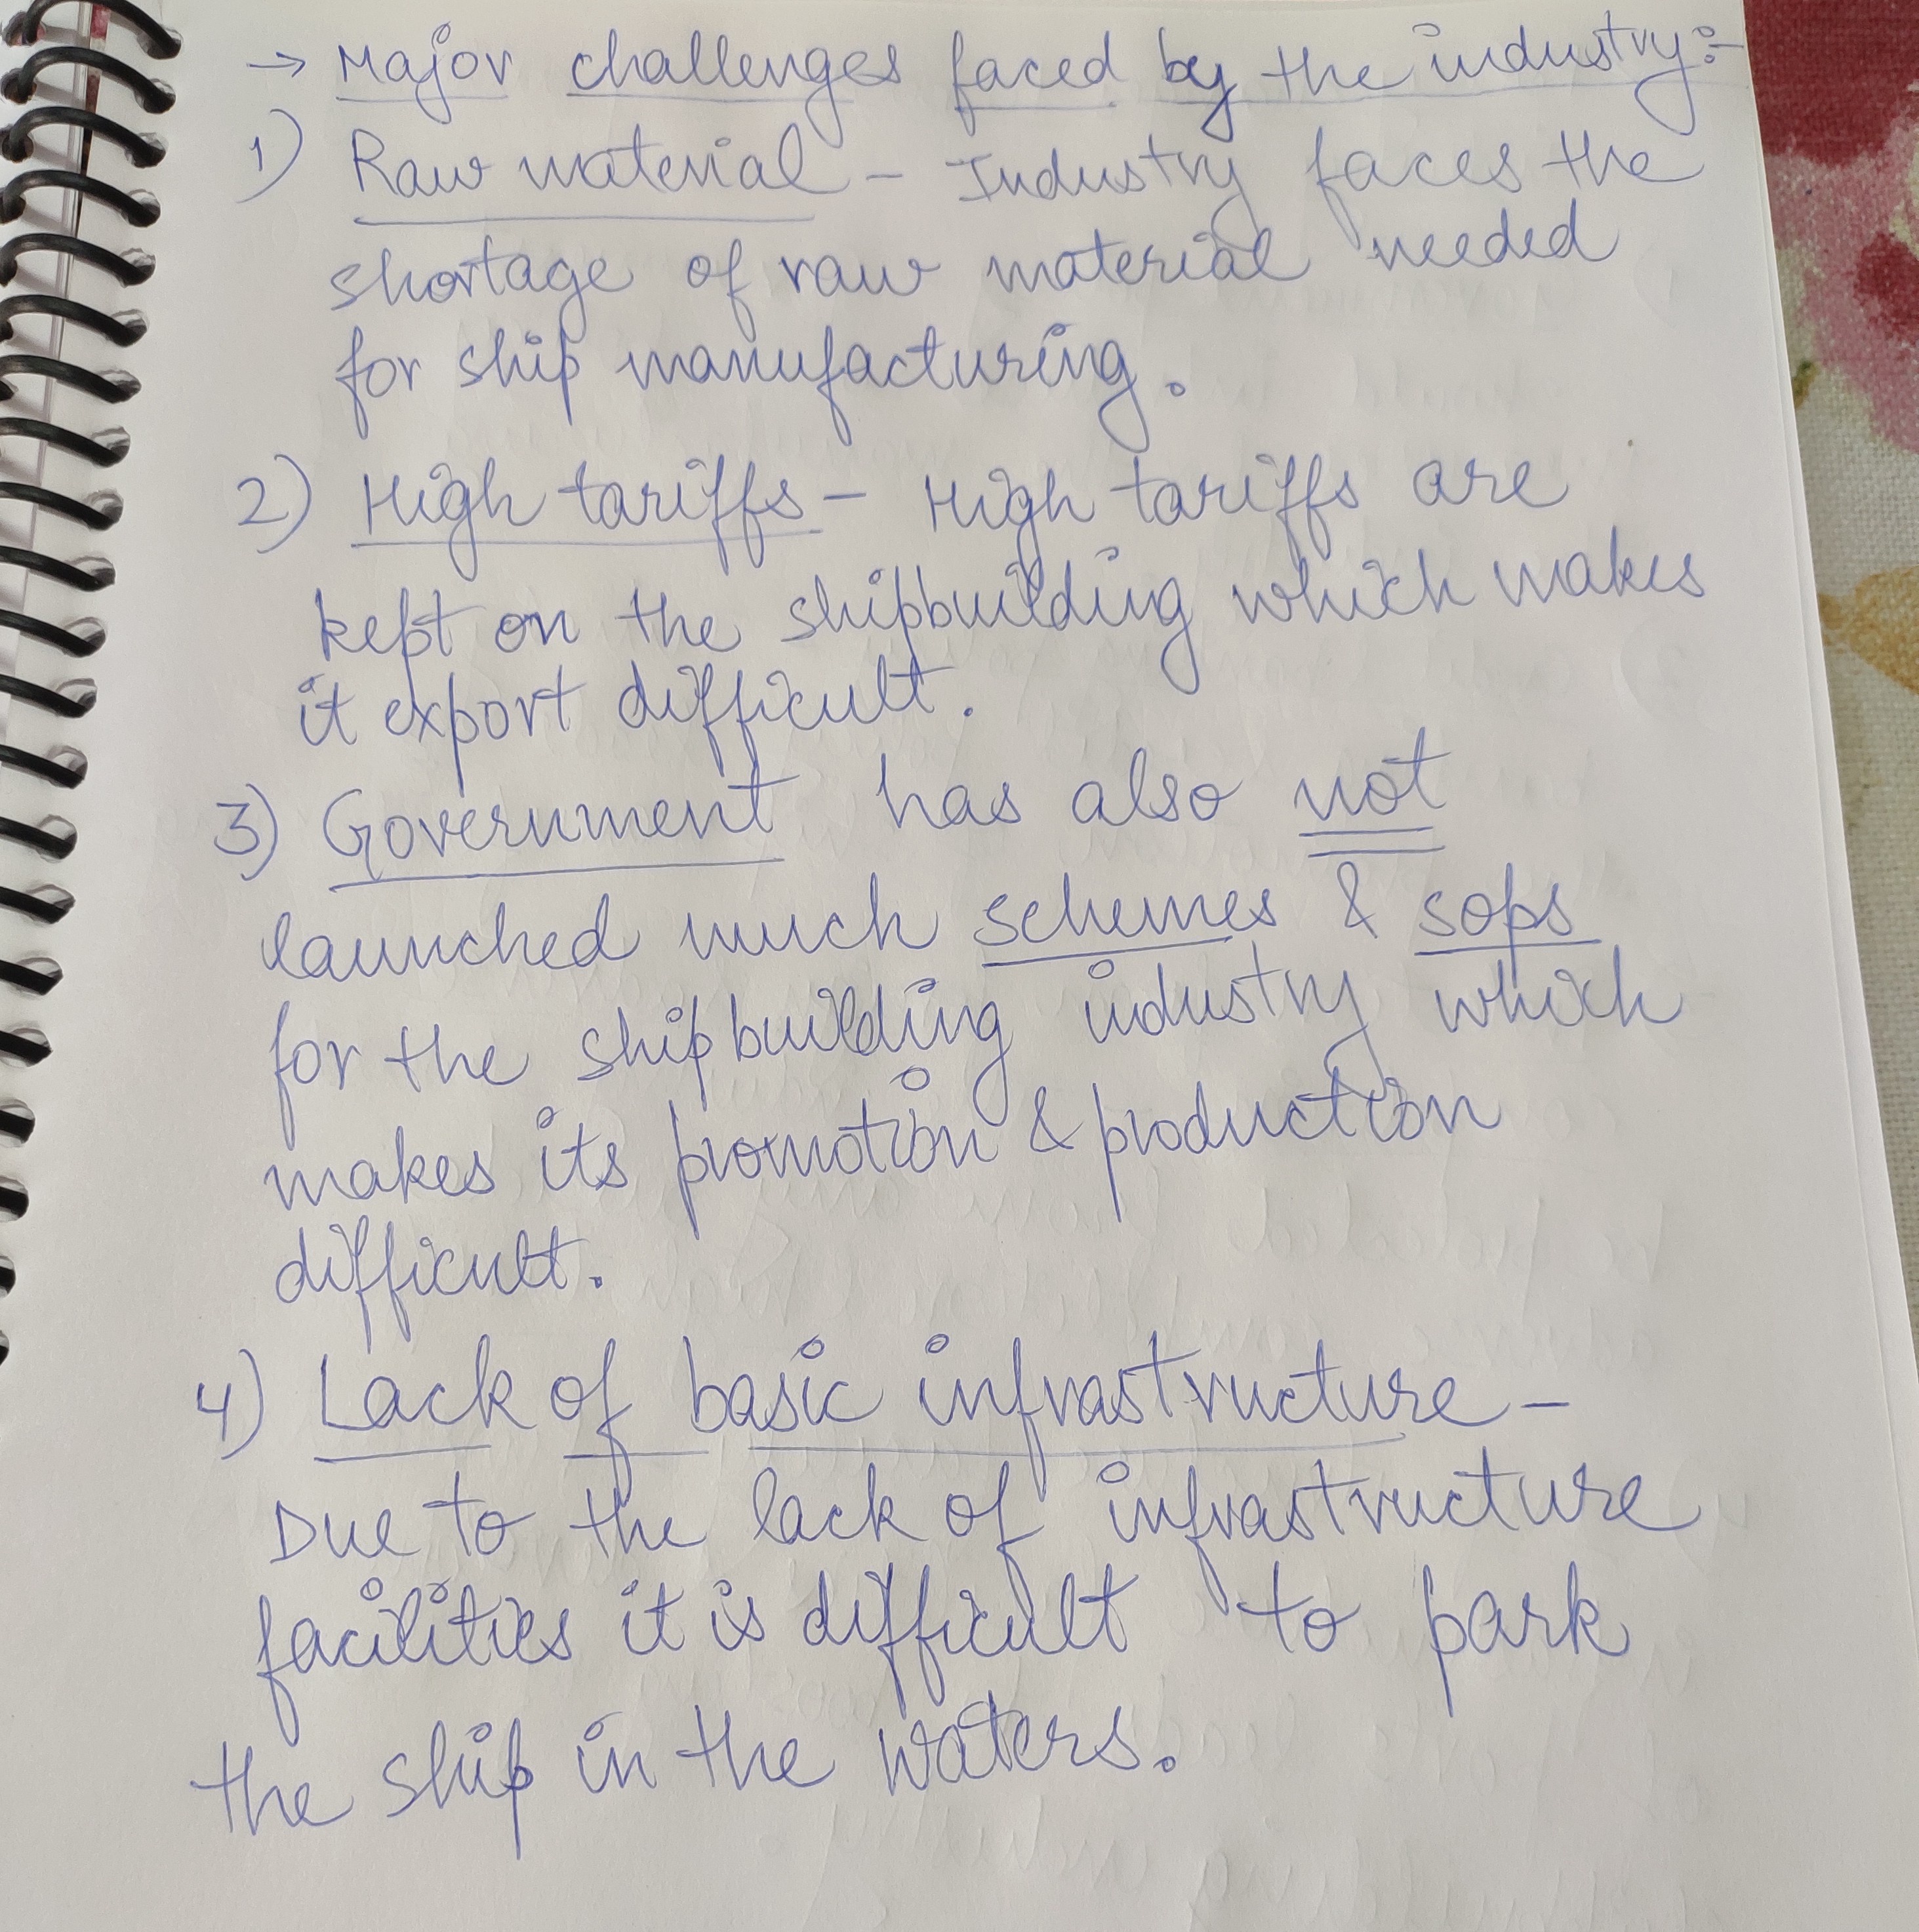 → Major challenges faced by the industry:-
1) Raw material - Industry faces the
shortage of raw material needed
for ship manufacturing.
2) High tariffs - High tariffs are
kept on the shipbuilding which makes
it export difficult.
3) Government has also not
launched much schemes & sops
for the shipbuilding industry which
makes its promotion & production
difficult.
4) Lack of basic infrastructure -
Due to the lack of infrastructure
facilities it is difficult to park
the ship in the waters.